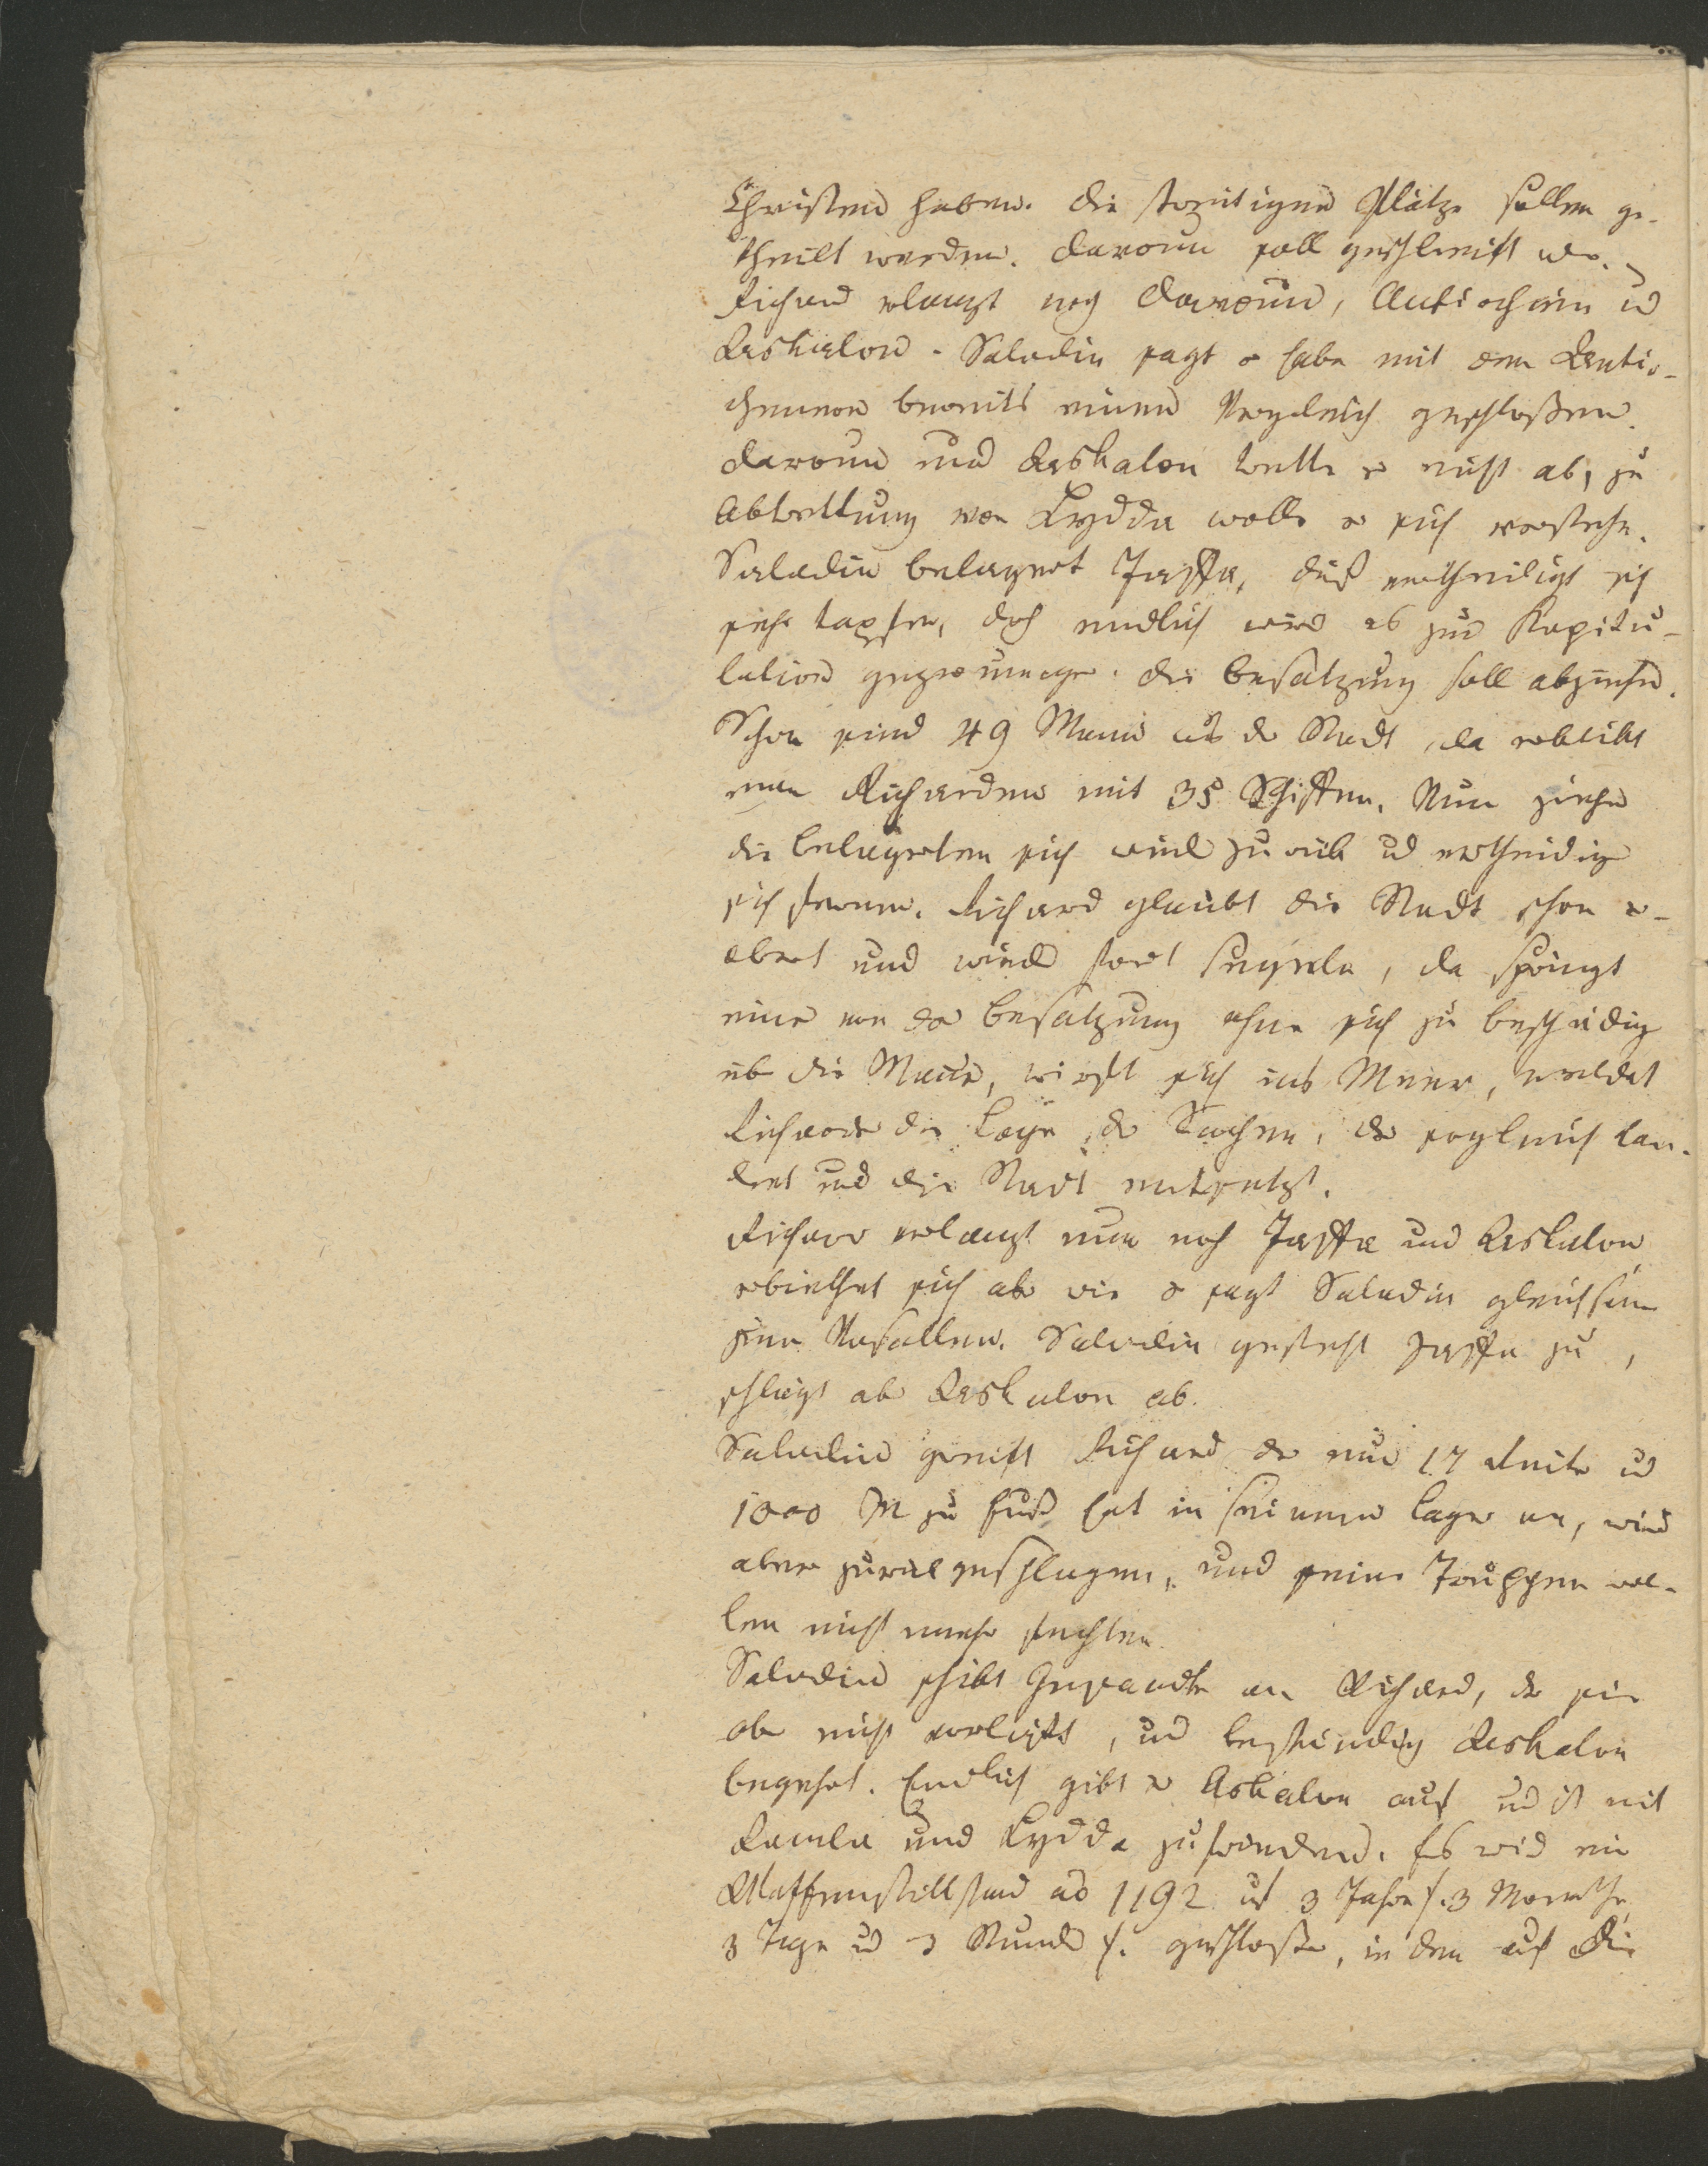 Christen haben. Die streitigen Plätze sollen ge-
theilt werden. Daroum soll geschleift wer.
Richard verlangt noch Daroum, Antiochien und
Askalon. Saladin sagt er habe mit den Antio-
chenern bereits einen Vergleich geschloßen.
Daroum und Askalon trette er nicht ab, zu
Abtrettung von Lydda wolle er sich verstehn.
Saladin belagert Jaffa, dieß vertheidigt sich
sehr tapfer, doch endlich wird es zur Kapitu-
lation gezwungen. Die Besatzung soll abziehen.
Schon sind 49 Mann aus der Stadt, da erblickt
man Richarden mit 35 Schiffen. Nun ziehen
die Belagerten sich wieder zurück und vertheidigen
sich ferner. Richard glaubt die Stadt schon er-
obert und wieder fort seegeln, da springt
einer von der Besatzung ohne sich zu beschädigen
über die Mauer, wirft sich ins Meer, meldet
Richarden die Lage der Sachen, der sogleich lan-
det und die Stadt entsetzt.
Richard verlangt nun noch Jaffa und Askalon
erbiethet sich aber wie er sagt Saladin gleichsam
zum Vasallen. Saladin gesteht Jaffa zu,
schlägt aber Askalon ab.
Saladin greift Richard der nur 17 Reiter und
1000 M zu Fuß hat in seinem Lager an, wird
aber zurückgeschlagen, und seine Truppen wol-
len nicht mehr fechten.
Saladin schikt Gesandte an Richard, der sie
aber nicht vorläßt, und beständig Askalon
begehrt. Endlich gibt er Askalon auf und ist mit
Ramla und Lydda zufrieden. Es wird ein
Waffenstillstand ao 1192 auf 3 Jahre /: 3 Monathe,
3 Tage und 3 Stunden :/ geschloßen, in dem auf die